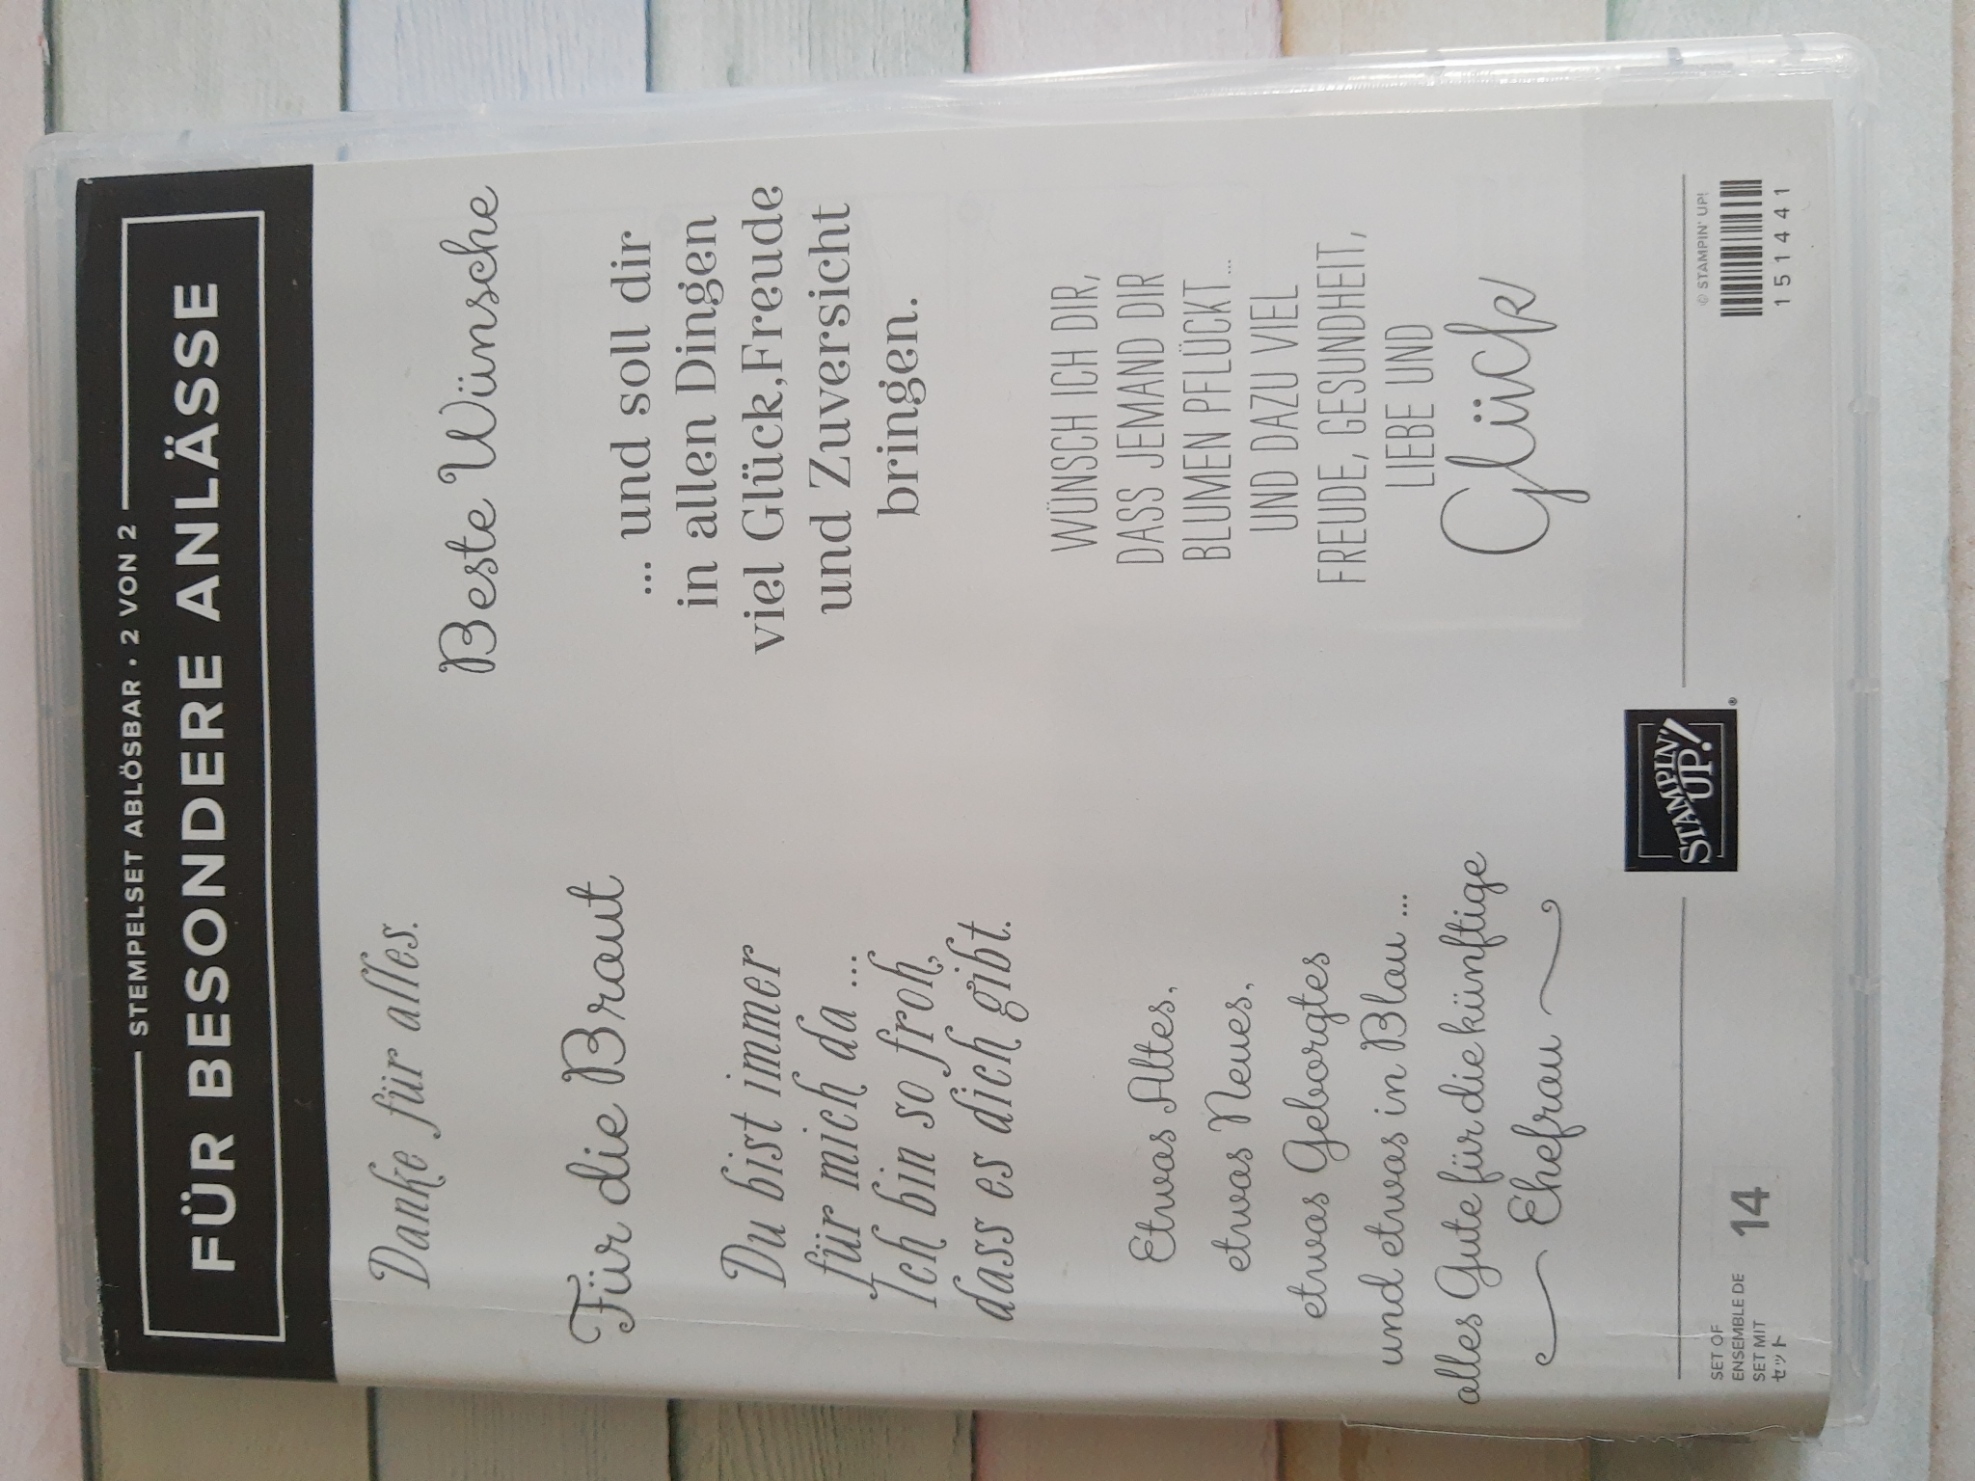 STEMPELSET ABLÖSBAR • 2 VON 2
FÜR BESONDERE ANLÄSSE
Danke für alles.
Für die Braut
Du bist immer
für mich da ...
Ich bin so froh,
dass es dich gibt.
Etwas Altes,
etwas Neues,
etwas Geborgtes
und etwas in Blau ...
alles Gute für die künftige
Ehefrau
Beste Wünsche
... und soll dir
in allen Dingen
viel Glück,Freude
und Zuversicht
bringen.
WÜNSCH ICH DIR,
DASS JEMAND DIR
BLUMEN PFLÜCKT...
UND DAZU VIEL
FREUDE, GESUNDHEIT,
LIEBE UND
Glück
SET OF
ENSEMBLE DE
SET MIT
セット
14
STAMPIN'
UP!®
© STAMPIN' UP!
151441